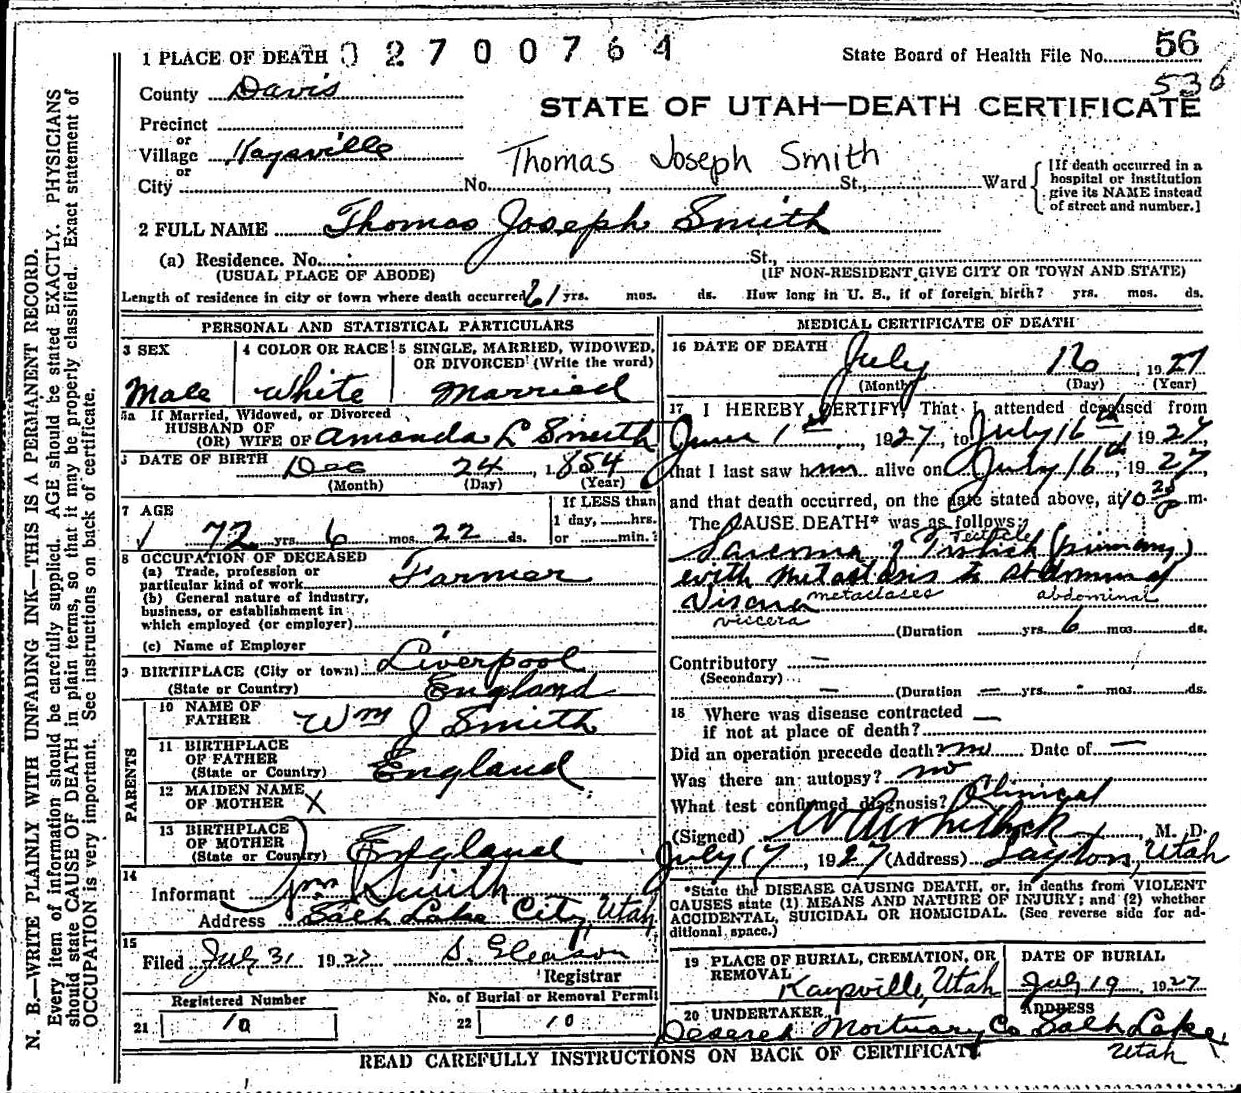 1 PLACE OF DEATH 02700764 State Board of Health File No. 56
536
County Davis
STATE OF UTAH—DEATH CERTIFICATE
Precinct
or
Village Kaysville
or
City No. St., Ward
Thomas Joseph Smith
[If death occurred in a
hospital or institution
give its NAME instead
of street and number.]
2 FULL NAME Thomas Joseph Smith
(a) Residence. No. St.,
(USUAL PLACE OF ABODE) (IF NON-RESIDENT GIVE CITY OR TOWN AND STATE)
Length of residence in city or town where death occurred 61 yrs. mos. ds. How long in U. S., if of foreign birth? yrs. mos. ds.
PERSONAL AND STATISTICAL PARTICULARS
3 SEX
Male
4 COLOR OR RACE
White
5 SINGLE, MARRIED, WIDOWED,
OR DIVORCED (Write the word)
Married
5a If Married, Widowed, or Divorced
HUSBAND OF
(OR) WIFE OF Amanda L Smith
DATE OF BIRTH Dec 24, 1854
(Month) (Day) (Year)
7 AGE
72 yrs. 6 mos. 22 ds.
If LESS than
1 day, hrs.
or min.?
8 OCCUPATION OF DECEASED
(a) Trade, profession or
particular kind of work Farmer
(b) General nature of industry,
business, or establishment in
which employed (or employer)
(c) Name of Employer
9 BIRTHPLACE (City or town) Liverpool
(State or Country) England
PARENTS
10 NAME OF
FATHER Wm J Smith
11 BIRTHPLACE
OF FATHER
(State or Country) England
12 MAIDEN NAME
OF MOTHER X
13 BIRTHPLACE
OF MOTHER
(State or Country) England
14
Informant Wm Smith
Address Salt Lake City, Utah
15
Filed July 31 1927 S. Gleason
Registrar
Registered Number
21 10
No. of Burial or Removal Permit
22 10
MEDICAL CERTIFICATE OF DEATH
16 DATE OF DEATH
July 16 1927
(Month) (Day) (Year)
17 I HEREBY CERTIFY, That I attended deceased from
June 1st, 1927, to July 16th 1927,
that I last saw him alive on July 16th, 1927
and that death occurred, on the date stated above, at 10 P m.
The CAUSE DEATH* was as follows:
Testicle
Sarcoma of Testicle (primary)
with metastasis to abdominal
Viscera metastases abdominal
viscera
(Duration yrs. 6 mos. ds.
Contributory —
(Secondary)
— (Duration — yrs. mos. ds.
18 Where was disease contracted
if not at place of death? —
Did an operation precede death? no Date of —
Was there an autopsy? no
What test confirmed diagnosis? Clinical
(Signed) Whitlock, M. D.
July 17, 1927 (Address) Layton, Utah
*State the DISEASE CAUSING DEATH, or, in deaths from VIOLENT
CAUSES state (1) MEANS AND NATURE OF INJURY; and (2) whether
ACCIDENTAL, SUICIDAL OR HOMICIDAL. (See reverse side for ad-
ditional space.)
19 PLACE OF BURIAL, CREMATION, OR
REMOVAL
Kaysville, Utah
DATE OF BURIAL
July 19, 1927
20 UNDERTAKER
Deseret Mortuary Co
ADDRESS
Salt Lake,
Utah
READ CAREFULLY INSTRUCTIONS ON BACK OF CERTIFICATE
N. B.—WRITE PLAINLY WITH UNFADING INK—THIS IS A PERMANENT RECORD.
Every item of information should be carefully supplied. AGE should be stated EXACTLY. PHYSICIANS
should state CAUSE OF DEATH in plain terms, so that it may be properly classified. Exact statement of
OCCUPATION is very important. See instructions on back of certificate.